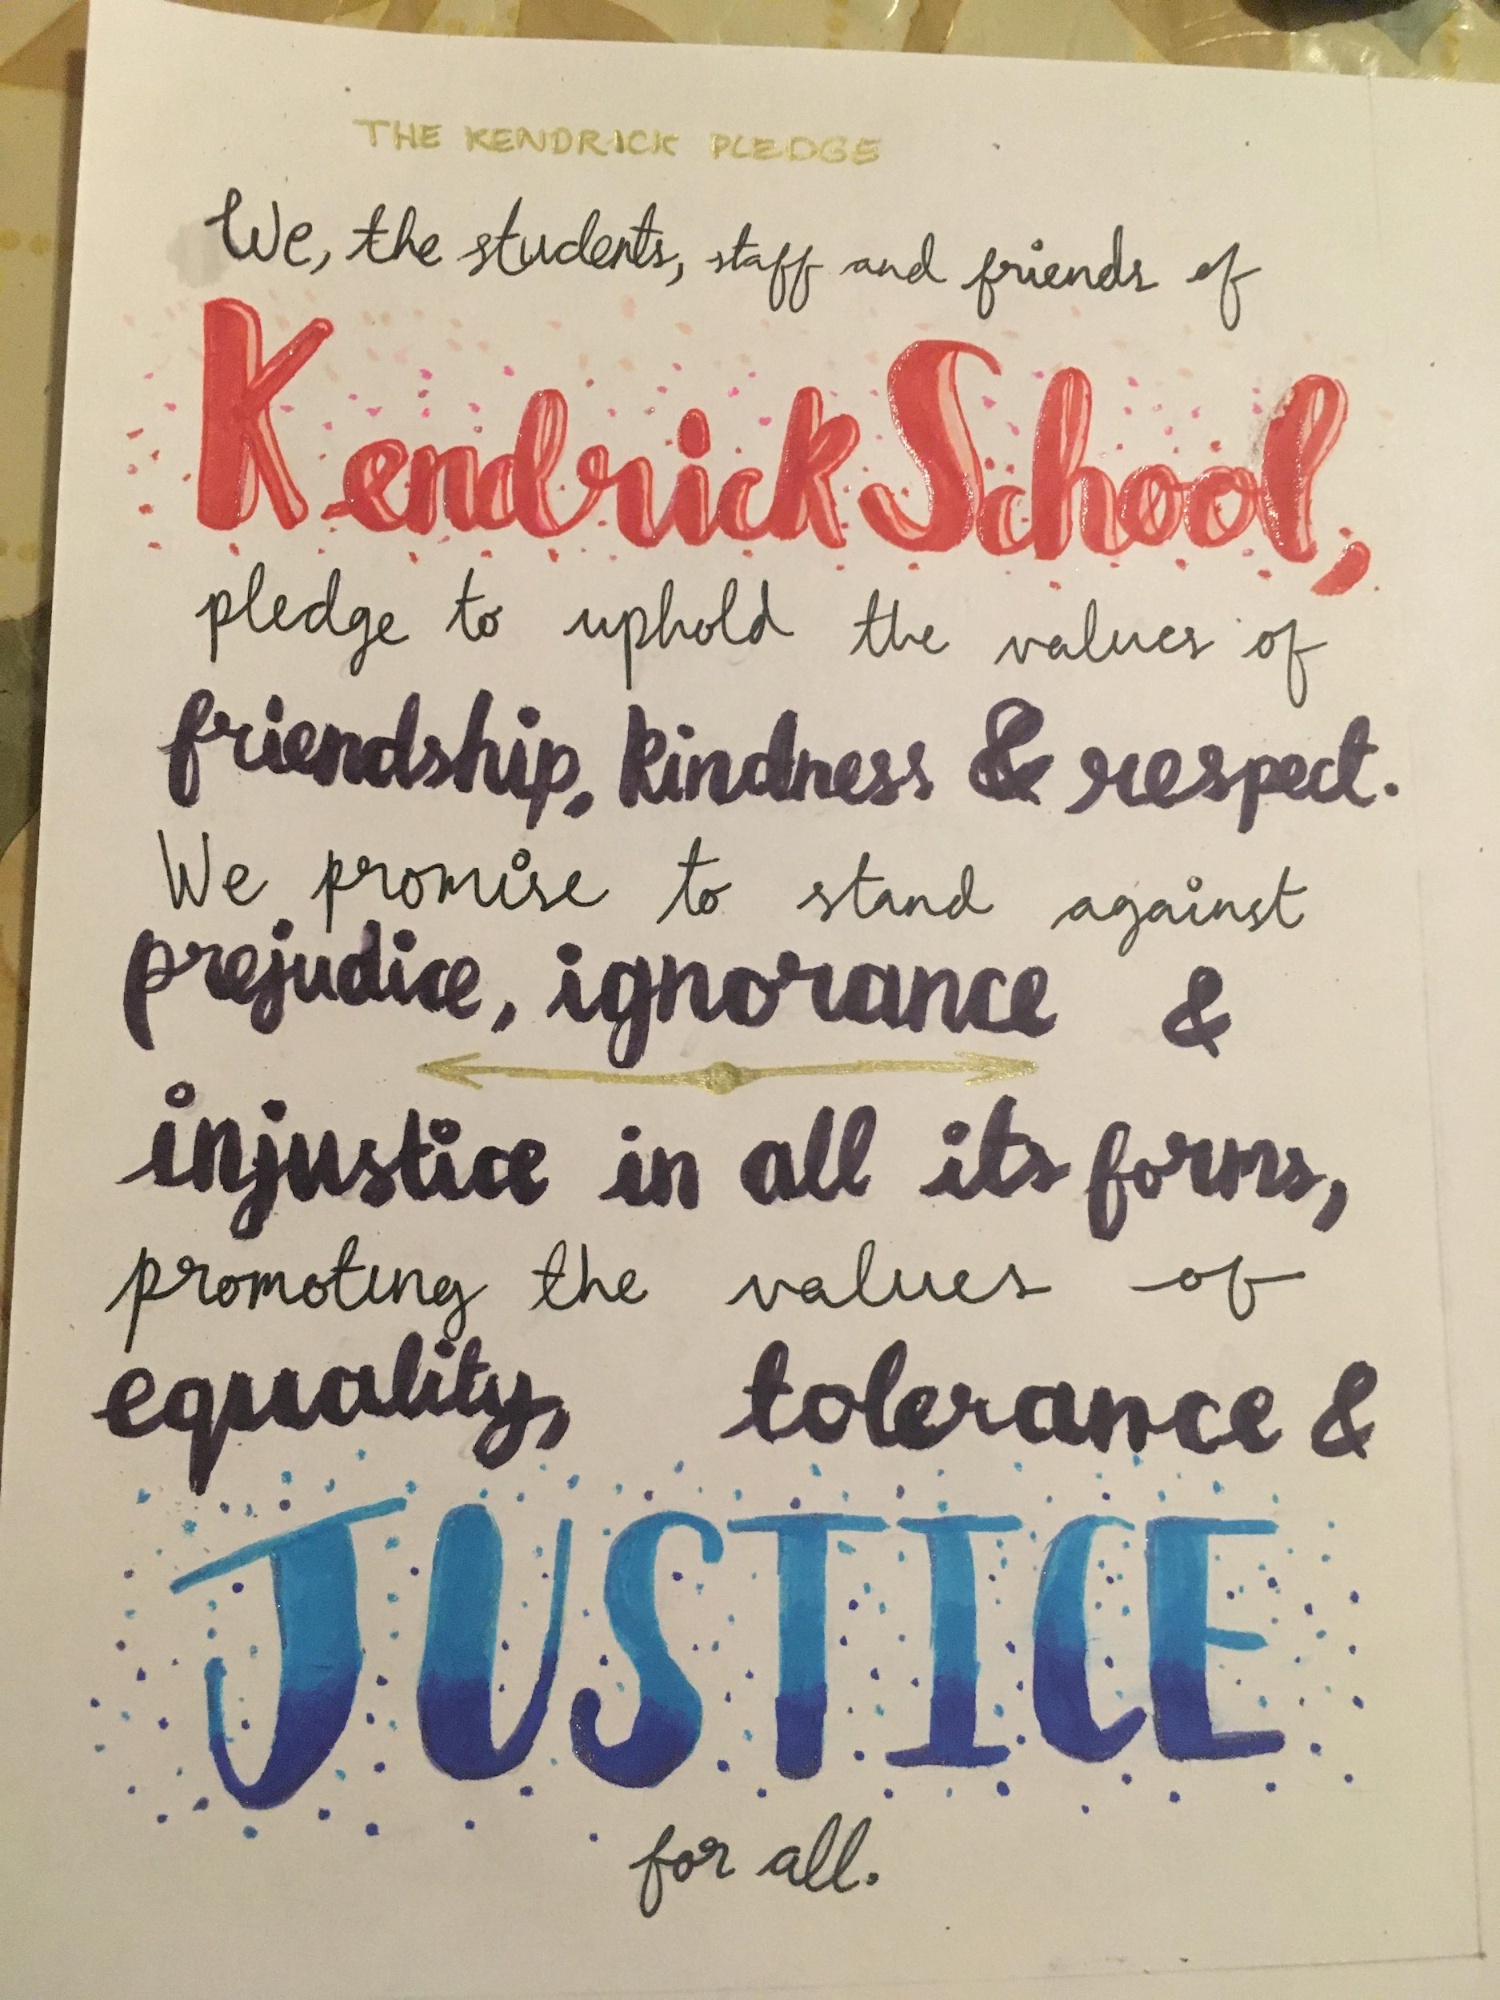 THE KENDRICK PLEDGE
We, the students, staff and friends of
Kendrick School,
pledge to uphold the values of
friendship, kindness & respect.
We promise to stand against
prejudice, ignorance &
injustice in all its forms,
promoting the values of
equality, tolerance &
JUSTICE
for all.